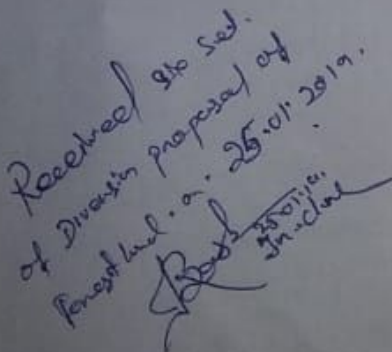 Received 9 no set.
of Diversion proposal of
Forest land. on. 25.01.2019.
25.01.19.